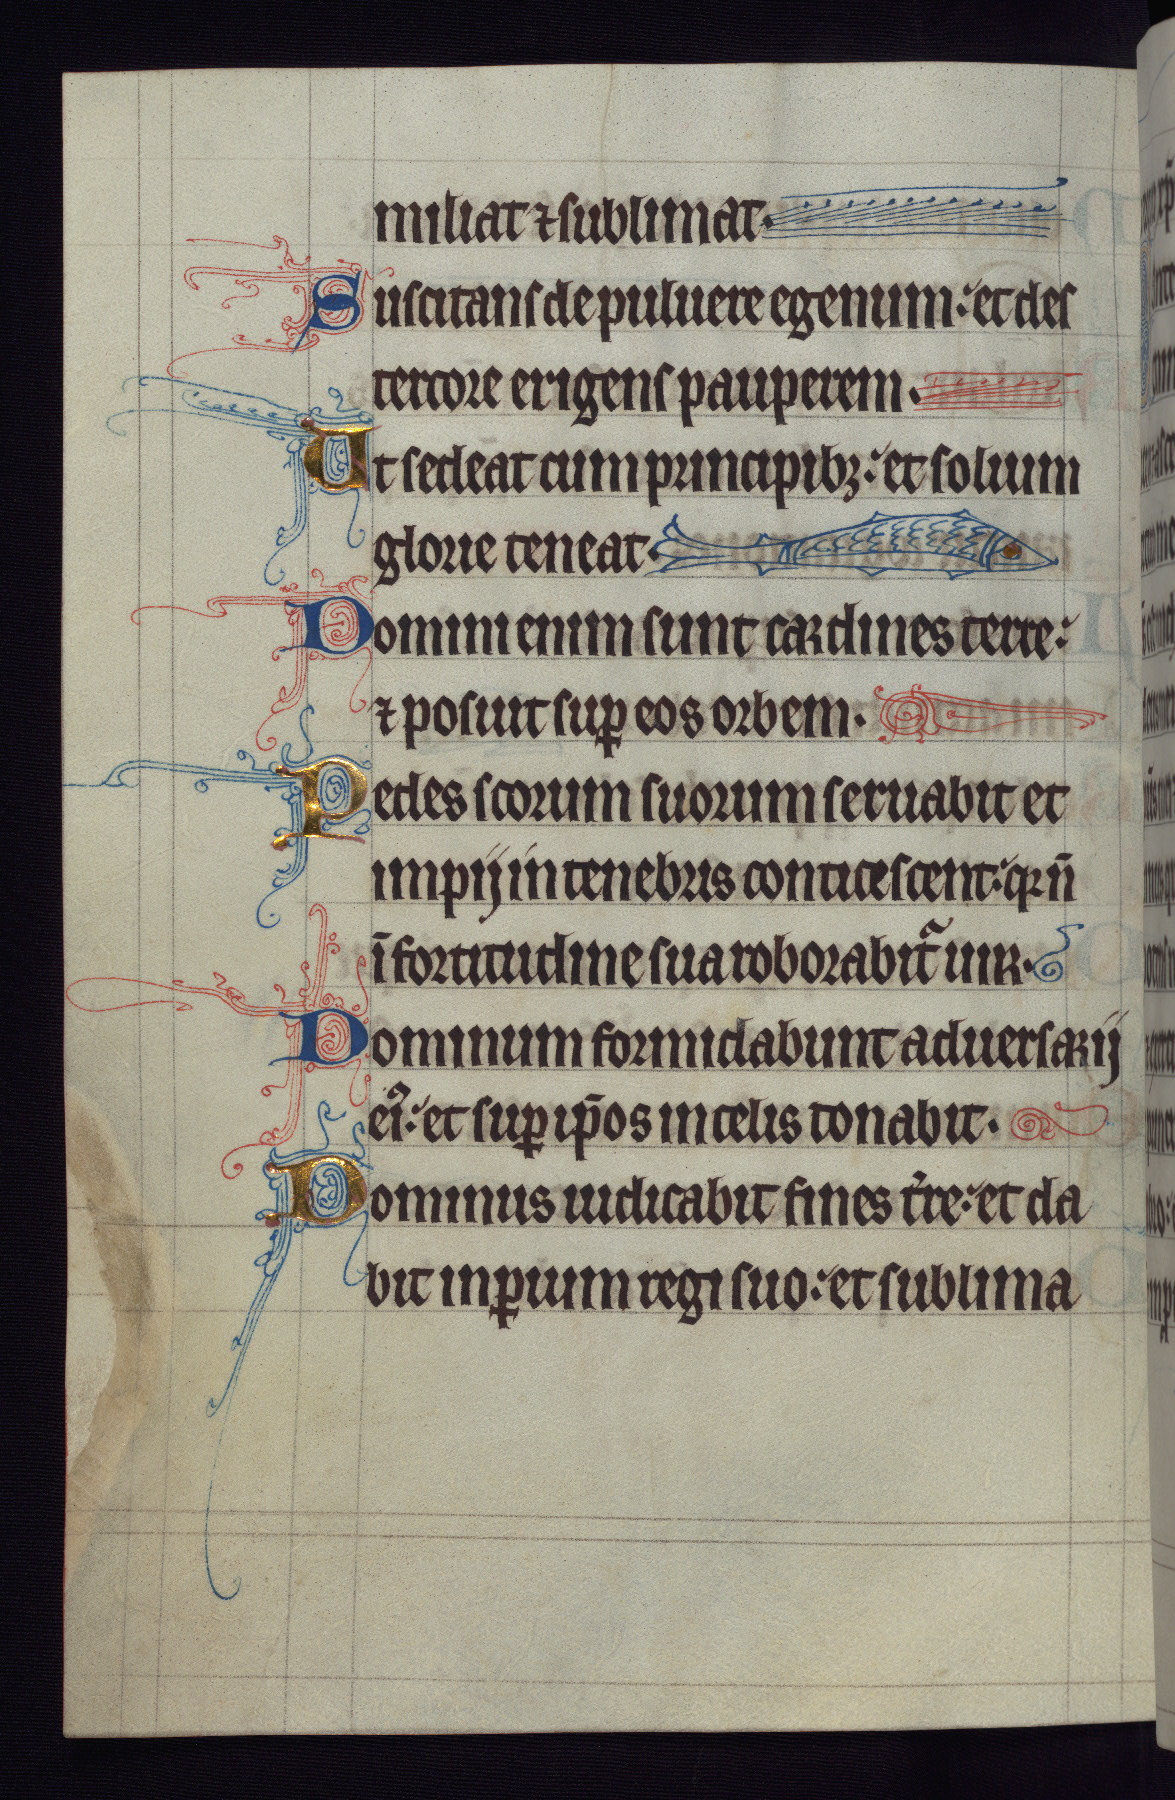 miliat ⁊ sublimat.
Suscitans de puluere egenum: et des
tercore erigens pauperem.
Ut sedeat cum principibꝫ: et solium
glorie teneat.
Domini enim sunt cardines terre:
⁊ posuit suꝑ eos orbem.
Pedes scorum suorum seruabit et
impij in tenebris conticescent: qꝛ n̄
ī fortitudine sua roborabit᷑ uir.
Dominum formidabunt aduersarij
eiꝰ: et suꝑ ip̄os in celis tonabit.
Dominus iudicabit fines t̉re: et da
bit inꝑium regi suo: et sublima